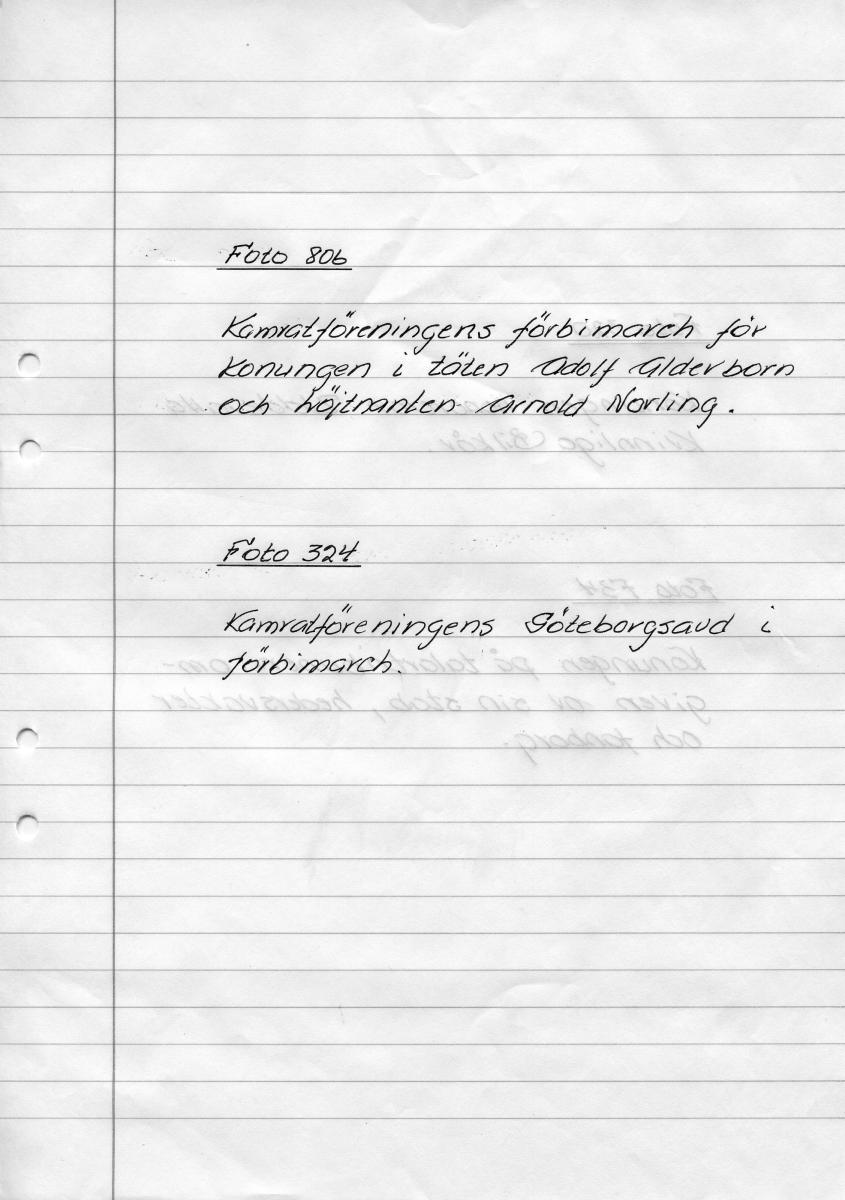 Foto 806
Kamratföreningens förbimarch för
Konungen i täten Adolf Alderborn
och Löjtnanten Arnold Norling.
Foto 324
Kamratföreningens Göteborgsavd i
förbimarch.